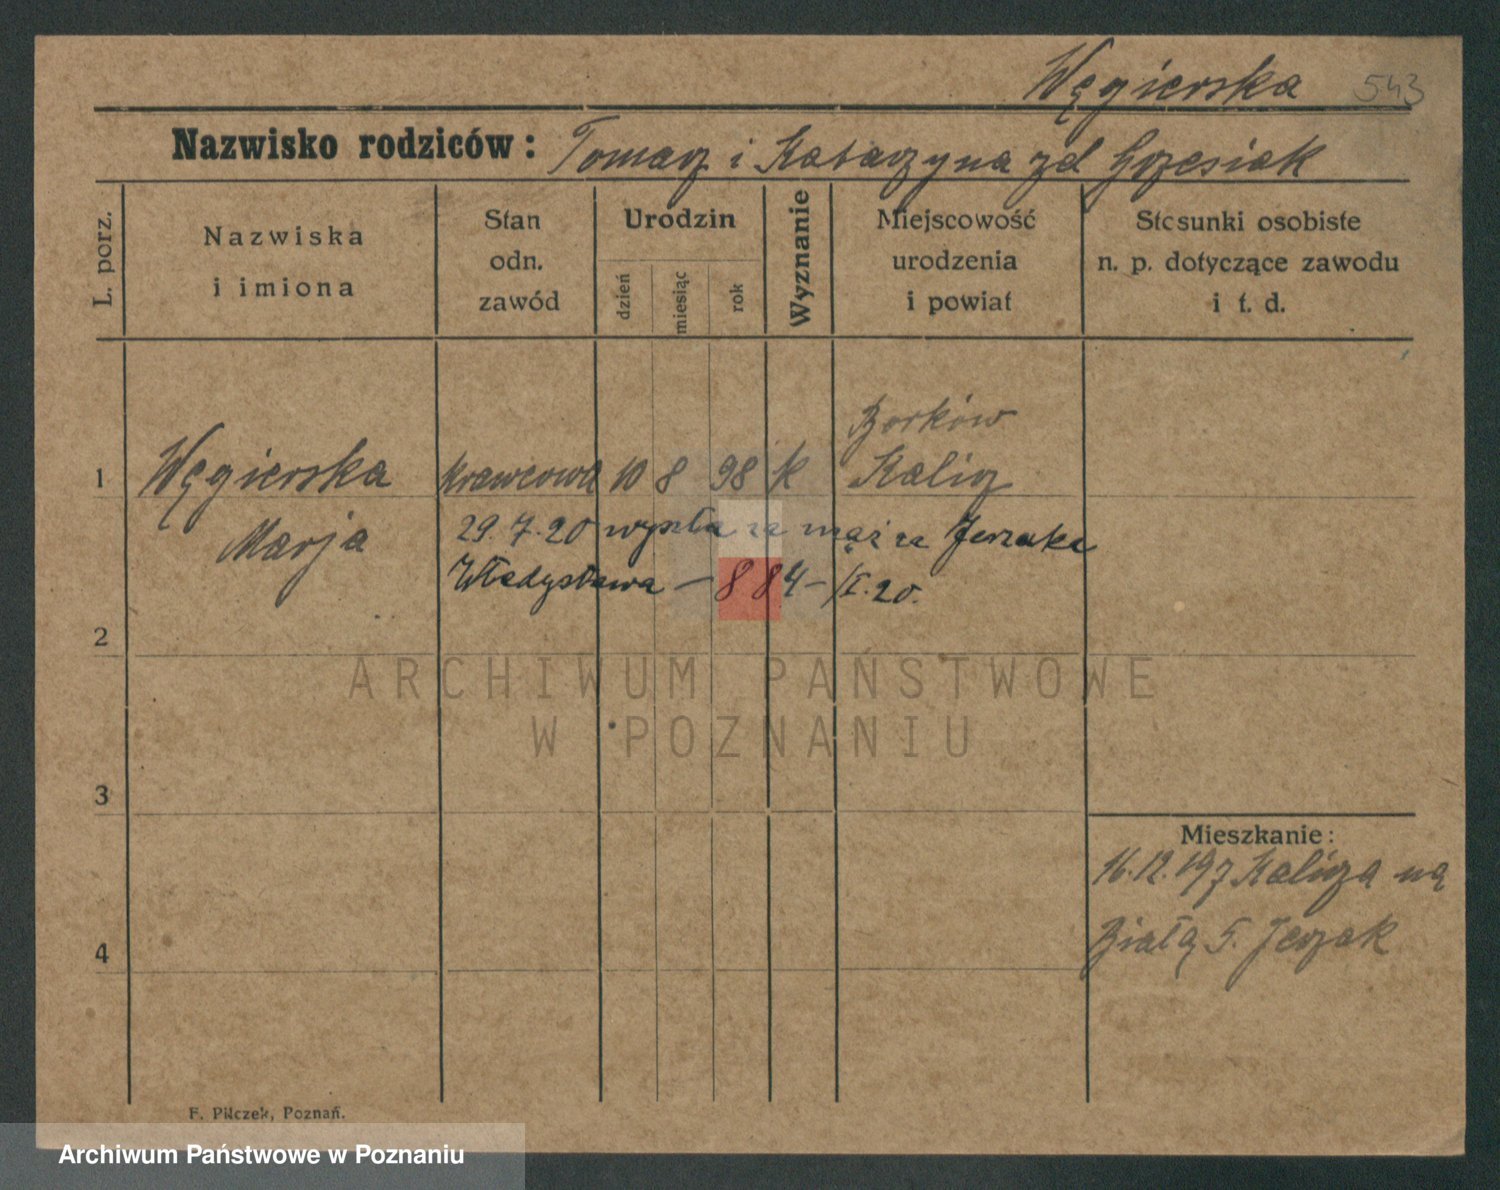 Węgierska 543
Nazwisko rodziców: Tomasz i Katarzyna zd Grzesiak
L. porz.
Nazwiska
i imiona
Stan
odn.
zawód
Urodzin
dzień
miesiąc
rok
Wyznanie
Miejscowość
urodzenia
i powiat
Stosunki osobiste
n. p. dotyczące zawodu
i t. d.
Borków
1 Węgierska Krawcowa 10 8 98 K Kalisz
Marja 29.7.20 wyszła za mąż za Jerzaka
Władysława — 884 — /I.20.
2
ARCHIWUM PAŃSTWOWE
W POZNANIU
3
Mieszkanie:
16.12.197 Kalisza na
Białą 5. Jerzak
4
F. Pilczek, Poznań.
Archiwum Państwowe w Poznaniu